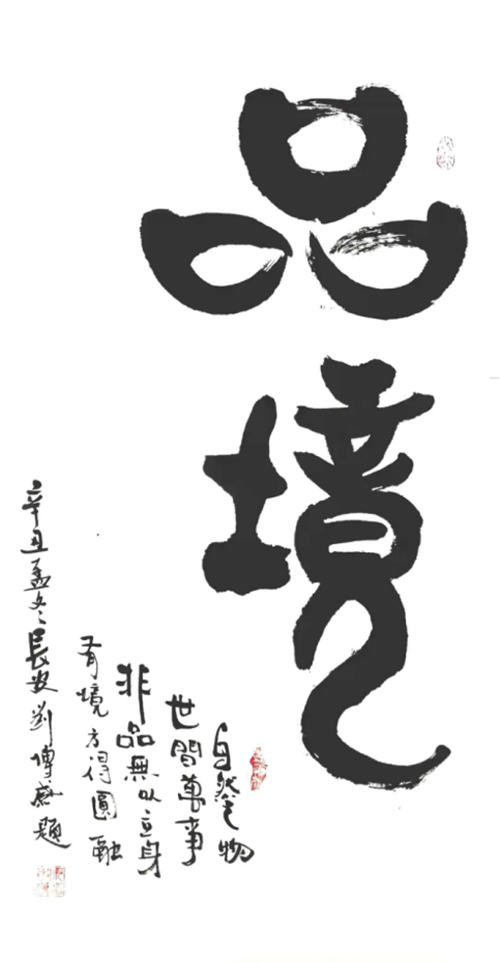 品境
自然之物
世間萬事
非品無以立身
有境方得圓融
辛丑孟冬長安劉題